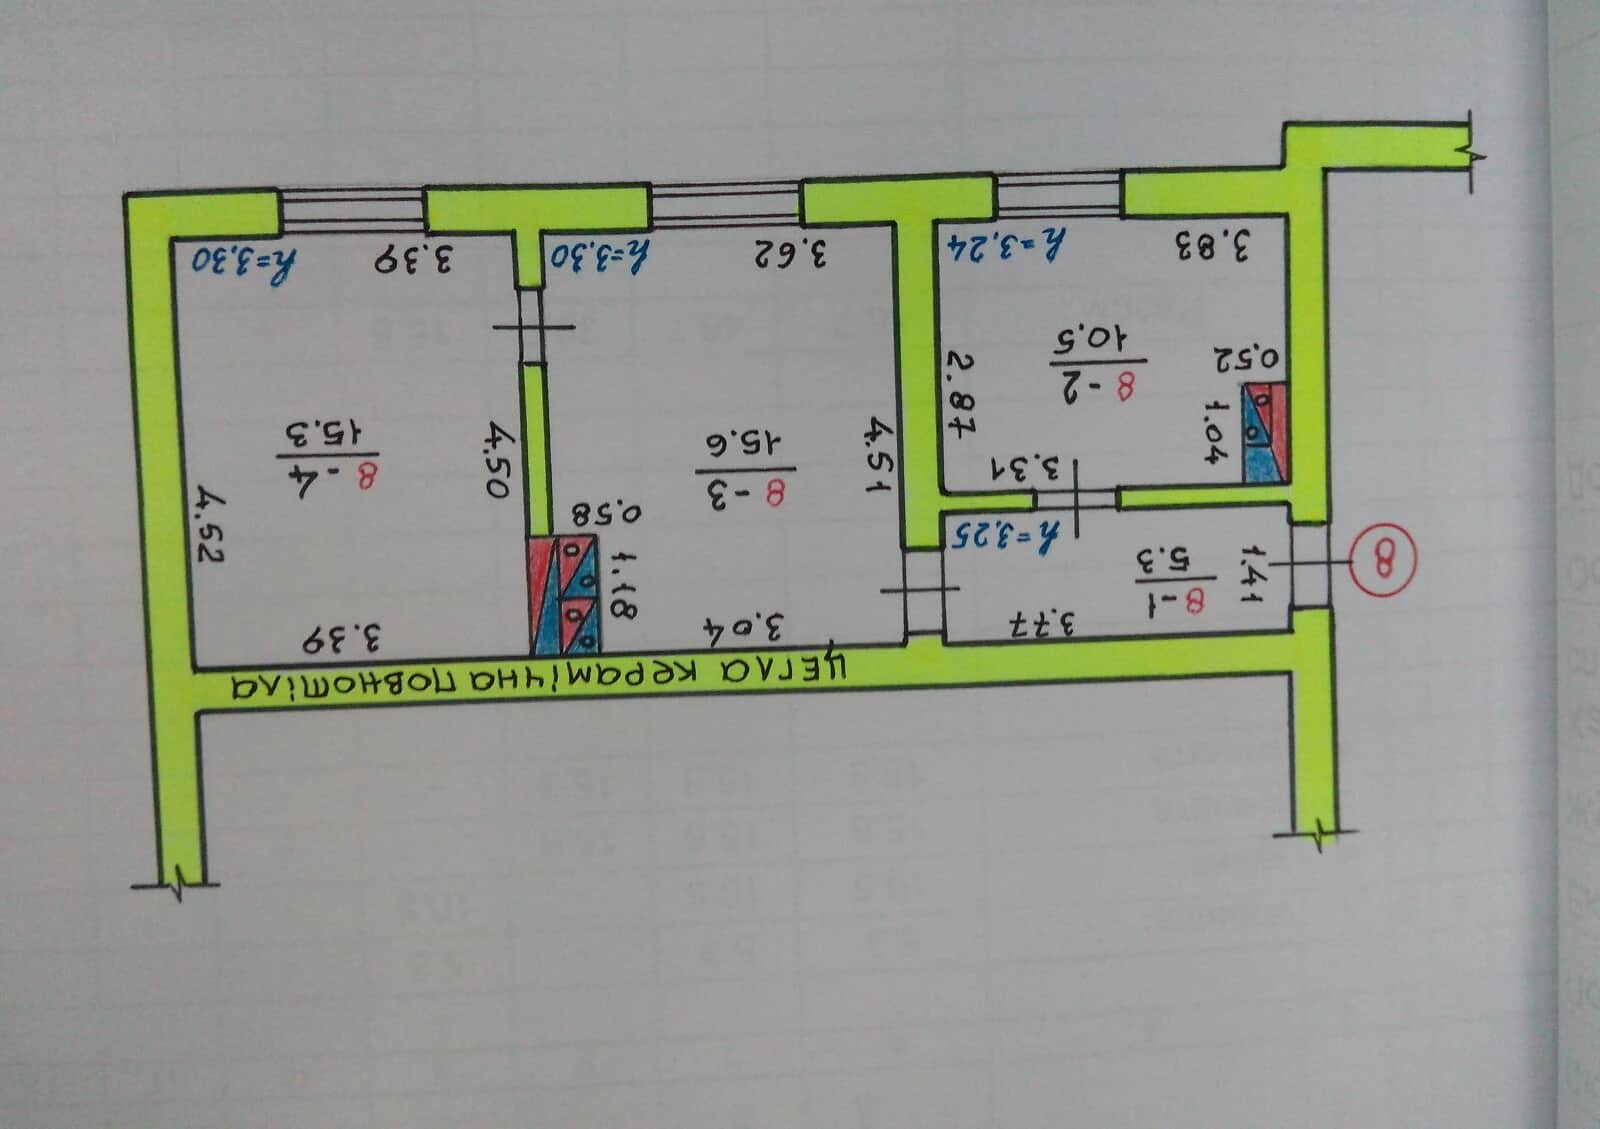 ЦЕГЛА КЕРАМІЧНА ПОВНОТІЛА
8
8-1
5.3
3.77
1.41
h=3.25
8-2
10.5
3.31
1.04
0.52
2.87
3.83
h=3.24
8-3
15.6
3.04
1.18
0.58
4.51
3.62
h=3.30
8-4
15.3
3.39
4.52
4.50
3.39
h=3.30